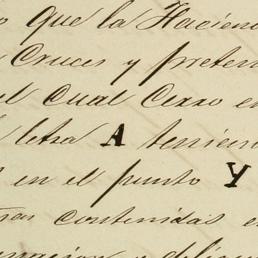 que la Hacien
Cruces y preten
el cual Cerro en
letra A tenien
en el punto Y
contenidas e